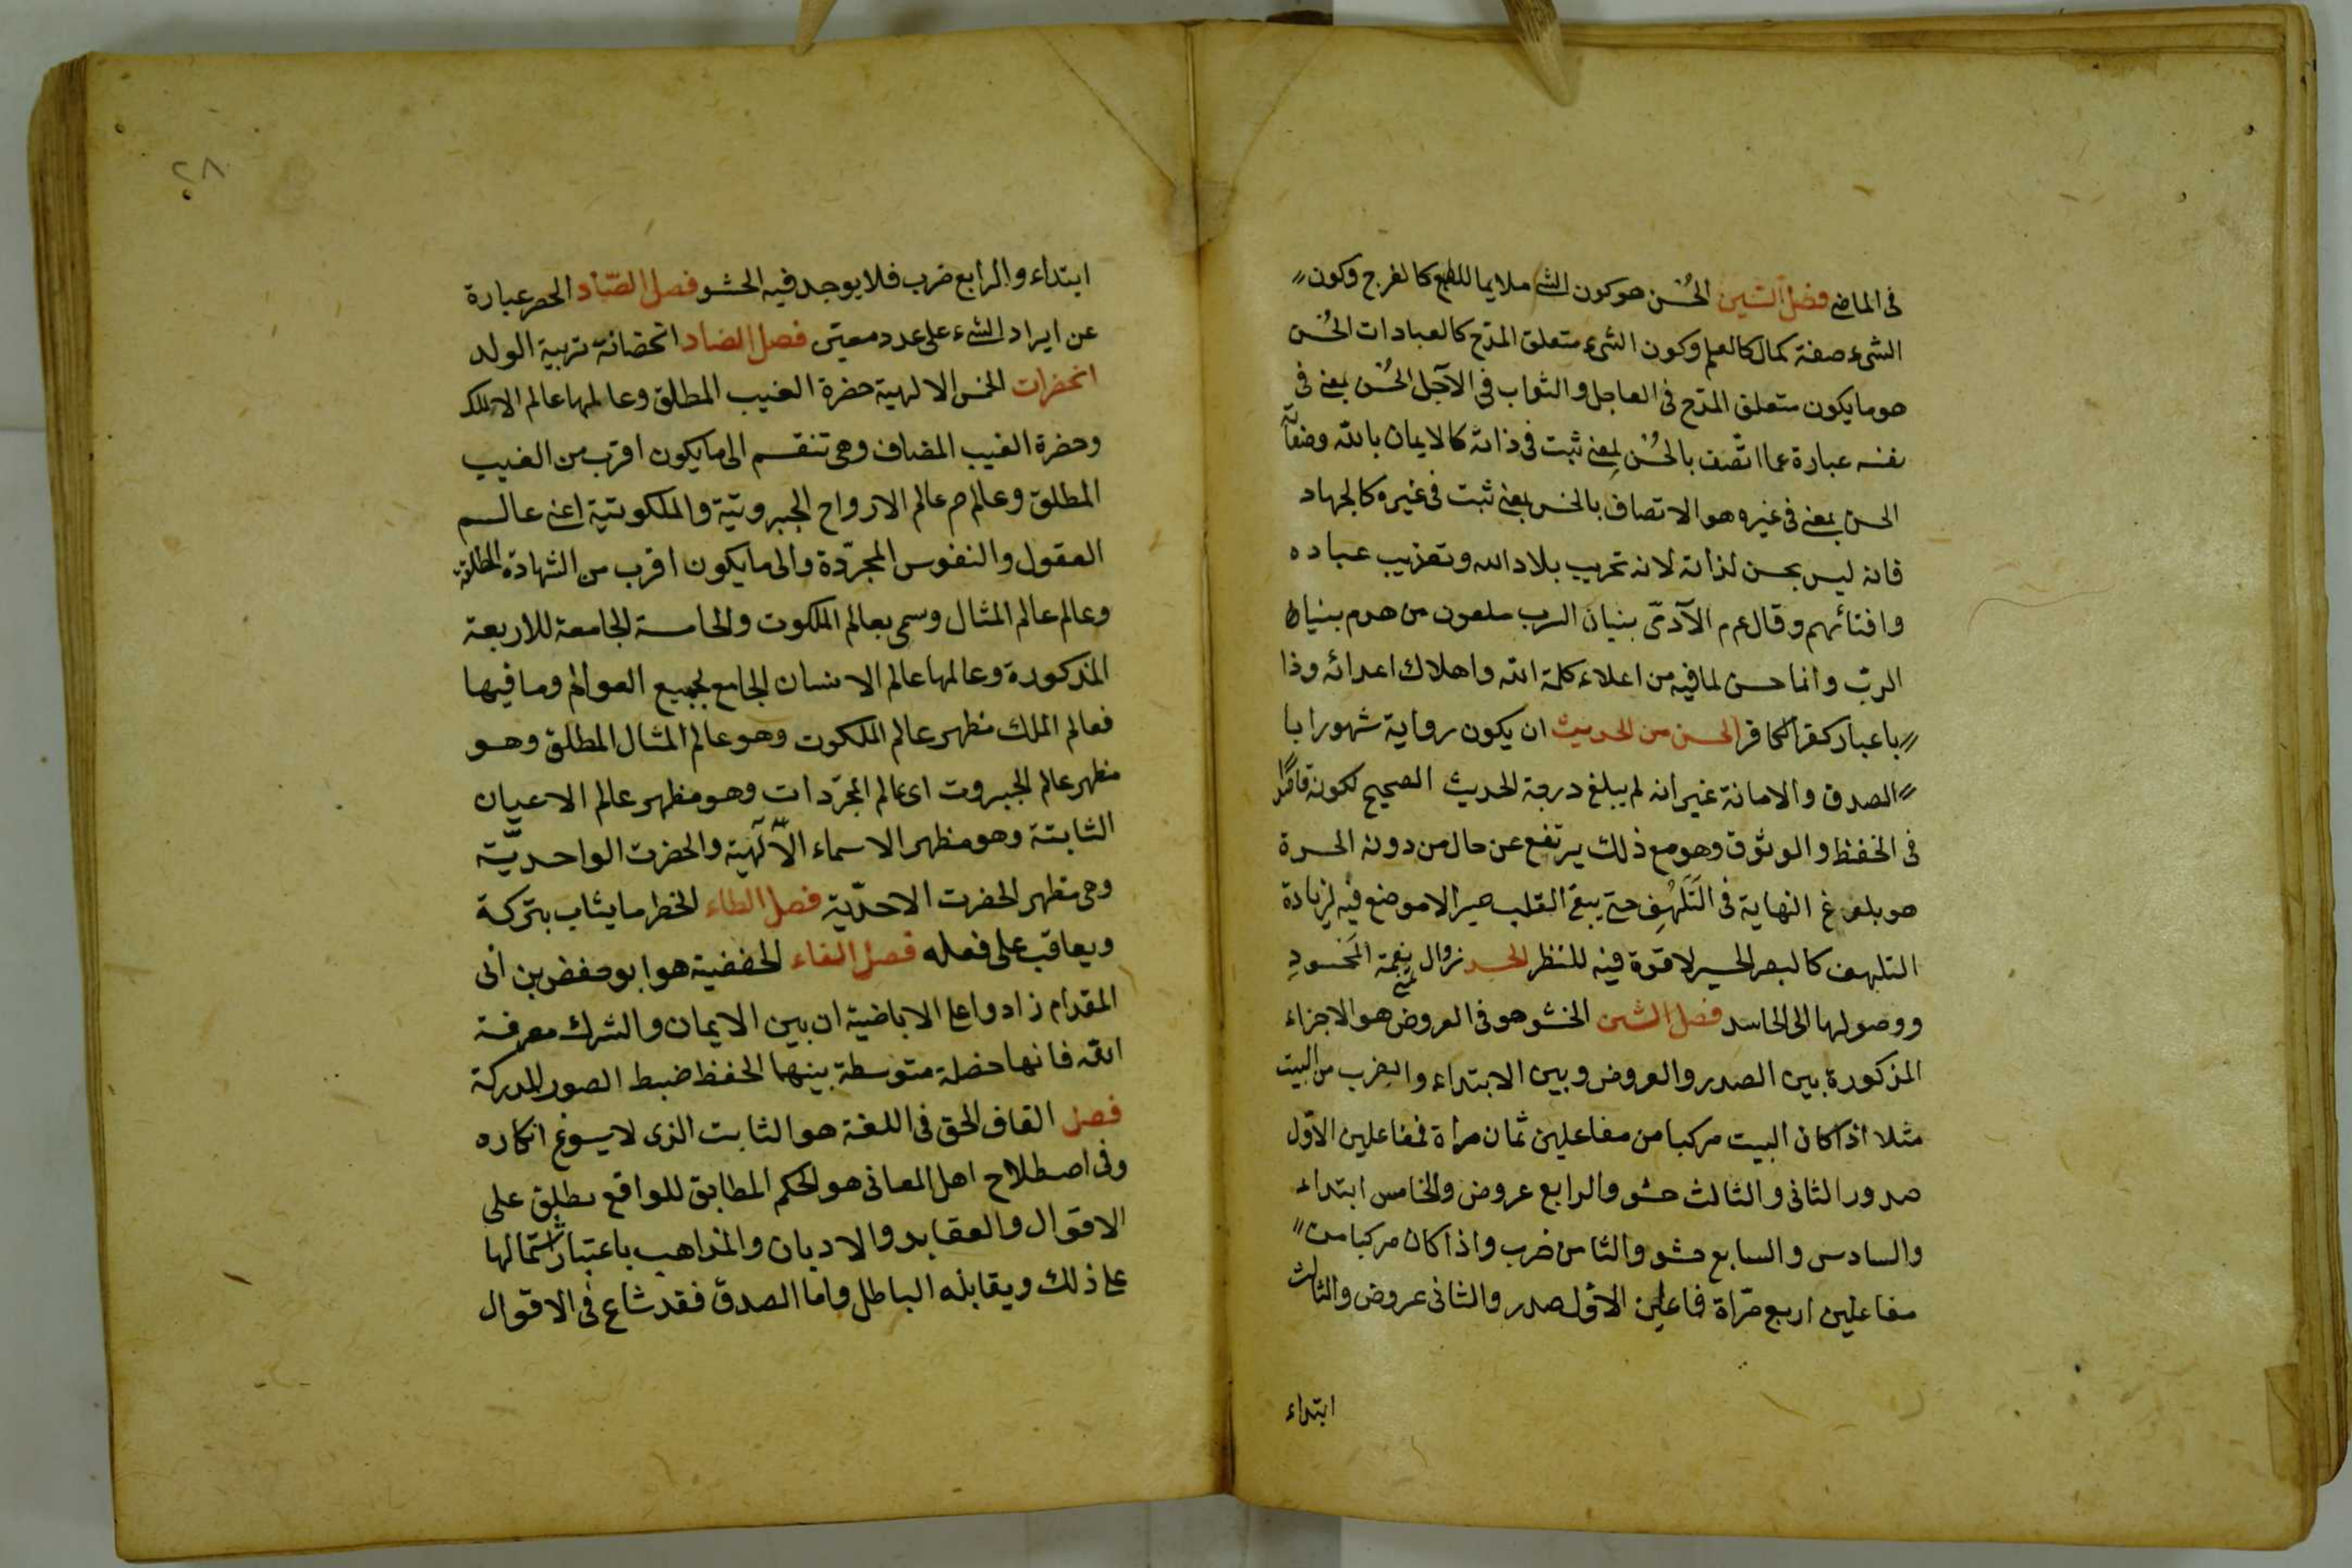 فى الماضى فصل السين الحُسْن هو كون الشئ ملايما للطبع كالفرح وكون
الشىء صفة كمال كالعلم وكون الشىء متعلق المدح كالعبادات الحُسْن
هو ما يكون متعلق المدح فى العاجل والثواب فى الآجل الحُسْن لمعنى فى
نفسه عبارة عما اتّصف بالحُسْن لِمعنى ثبت فى ذاته كالايمان بالله وصفاته
الحسن لمعنى فى غيره هو الاتصاف بالحسن لمعنى ثبت فى غيره كالجهاد
فانه ليس بحسن لذاته لانه تخريب بلاد الله وتعذيب عباده
وافنائهم وقال عم م الآدمّى بنيان الرب ملعون من هدم بنيان
الربّ وانما حسن لما فيه من اعلاء كلمة الله واهلاك اعدائه وذا
باعبار كفر الكافر الحسن من الحديث ان يكون رواية شهورا با
الصدق والامانة غير انه لم يبلغ درجة الحديث الصحيح لكونه قاصرًا
فى الحفظ والوثوق وهو مع ذلك يرتفع عن حال من دونه الحسرة
هو بلوغ النهاية فى التَلَهُفِ حتى يبقى القلب حسيرا لا موضع فيه لزيادة
التلهف كالبصر الحسير لا قوة فيه للنظر الحسد تمنى زوال نِعمة المَحْسودِ
ووصولها الى الحاسد فصل الشين الحشو هو فى العروض هو الاجزاء
المذكورة بين الصدر والعروض وبين الابتداء والضرب من البيت
مثلا اذا كان البيت مركبا من مفاعلين ثمان مراة فمفاعلين الاوّل
صدور الثانى والثالث حشو والرابع عروض والخامس ابتداء
والسادس والسابع حشو والثامن ضرب واذا كان مركبا من
مفاعلين اربع مرّاة فاعلين الاوّل صدر والثانى عروض والثالث
ابتداء
٢٨
ابتداء والرابع ضرب فلا يوجد فيه الحشو فصل الصّاد الحصر عبارة
عن ايراد الشىء على عدد معيّن فصل الضاد الحضانة تربية الولد
الحضرات الخمس الالهية حضرة الغيب المطلق وعالمها عالم الاملاك
وحضرة الغيب المضاف وهى تنقسم الى ما يكون اقرب من الغيب
المطلق وعالم م عالم الارواح الجبروتيّة والملكوتية اعنى عالم
العقول والنفوس المجرّدة والى ما يكون اقرب من الشهادة المطلقة
وعالم عالم المثال وسمى بعالم الملكوت والخامسة الجامعة للاربعة
المذكورة وعالمها عالم الانسان الجامع لجميع العوالم وما فيها
فعالم الملك مظهر عالم الملكوت وهو عالم المثال المطلق وهو
مظهر عالم الجبروت اى عالم المجرّدات وهو مظهر عالم الاعيان
الثابتة وهو مظهر الاسماء الآلهيّة والحضرت الواحديّة
وهى مظهر الحضرت الاحديّة فصل الظاء الخطر ما يثاب بتركة
ويعاقب على فعله فصل الفاء الحفضية هو ابو حفض بن ابى
المقدام زادوا على الاباضية ان بين الايمان والشرك معرفة
الله فانها خصلة متوسطة بينهما الحفظ ضبط الصور المدركة
فصل القاف الحق فى اللغة هو الثابت الذى لا يسوغ انكاره
وفى اصطلاح اهل المعانى هو الحكم المطابق للواقع يطلق على
الاقوال والعقايد والاديان والمذاهب باعتبار اشتمالها
على ذلك ويقابله الباطل واما الصدق فقد شاع فى الاقوال